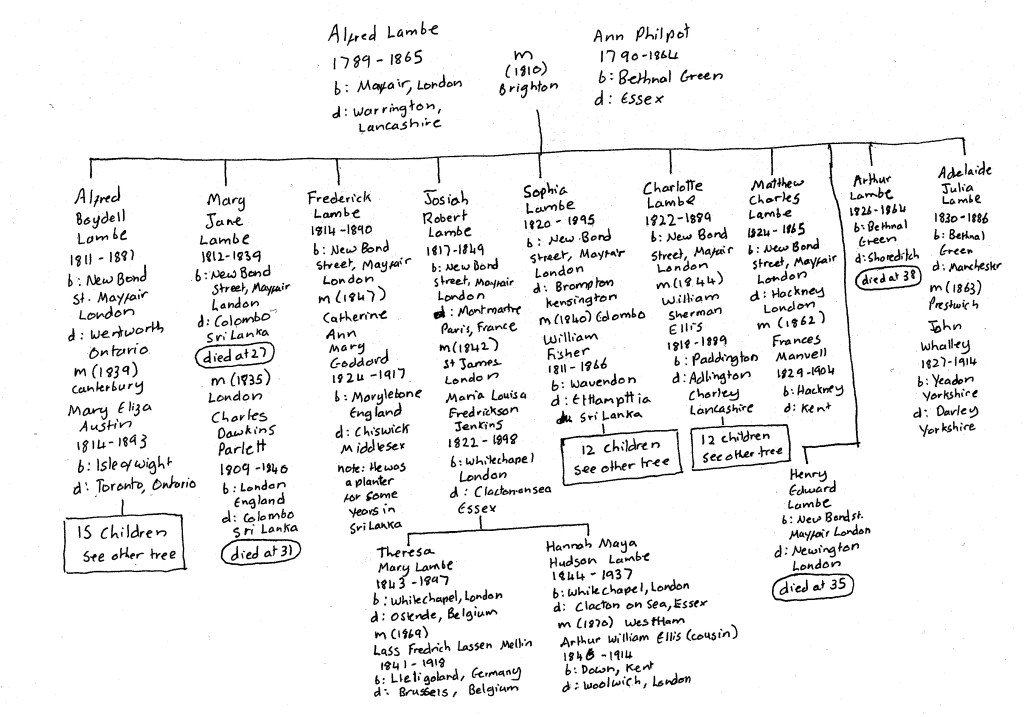 Alfred Lambe
1789-1865
b: Mayfair, London
d: Warrington,
Lancashire
m
(1810)
Brighton
Ann Philpot
1790-1864
b: Bethnal Green
d: Essex
Alfred
Boydell
Lambe
1811-1887
b: New Bond
St. Mayfair
London
d: Wentworth
Ontario
m (1839)
Canterbury
Mary Eliza
Austin
1814-1893
b: Isle of Wight
d: Toronto, Ontario
15 Children
See other tree
Mary
Jane
Lambe
1812-1839
b: New Bond
Street, Mayfair
London
d: Colombo
Sri Lanka
died at 27
m (1835)
London
Charles
Dawkins
Parlett
1809-1840
b: London
England
d: Colombo
Sri Lanka
died at 31
Frederick
Lambe
1814-1890
b: New Bond
Street, Mayfair
London
m (1847)
Catherine
Ann
Mary
Goddard
1824-1917
b: Marylebone
England
d: Chiswick
Middlesex
note: He was
a planter
for some
years in
Sri Lanka
Josiah
Robert
Lambe
1817-1849
b: New Bond
Street, Mayfair
London
d: Montmartre
Paris, France
m (1842)
St James
London
Maria Louisa
Fredrickson
Jenkins
1822-1898
b: Whitechapel
London
d: Clacton on sea
Essex
Theresa
Mary Lambe
1843-1897
b: Whitechapel, London
d: Ostende, Belgium
m (1869)
Lass Fredrich Lassen Mellin
1841-1918
b: Lleligoland, Germany
d: Brussels, Belgium
Hannah Maya
Hudson Lambe
1844-1937
b: Whitechapel, London
d: Clacton on Sea, Essex
m (1870) West Ham
Arthur William Ellis (cousin)
1846-1914
b: Down, Kent
d: Woolwich, London
Sophia
Lambe
1820-1895
b: New Bond
Street, Mayfair
London
d: Brompton
Kensington
m (1840) Colombo
William
Fisher
1811-1866
b: Wavendon
d: Sri Lanka
12 Children
See other tree
Charlotte
Lambe
1822-1889
b: New Bond
Street, Mayfair
London
m (1844)
William
Sherman
Ellis
1818-1889
b: Paddington
d: Adlington
Chorley
Lancashire
12 children
See other tree
Matthew
Charles
Lambe
1824-1865
b: New Bond
Street, Mayfair
London
d: Hackney
London
m (1862)
Frances
Manvell
1829-1904
b: Hackney
d: Kent
Henry
Edward
Lambe
b: New Bond St.
Mayfair London
d: Newington
London
died at 35
Arthur
Lambe
1826-1864
b: Bethnal
Green
d: Shoreditch
died at 38
Adelaide
Julia
Lambe
1830-1886
b: Bethnal
Green
d: Manchester
m (1863)
Prestwich
John
Whalley
1827-1914
b: Yeadon
Yorkshire
d: Darley
Yorkshire